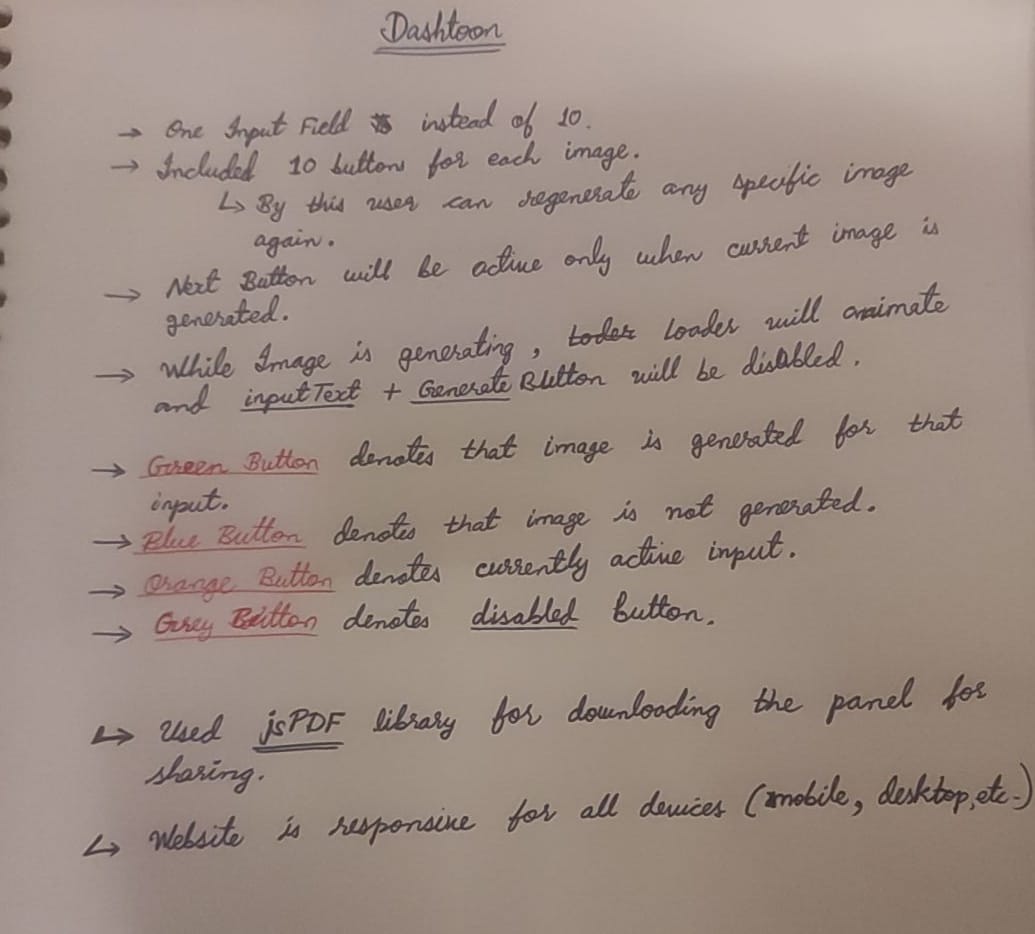 Dashtoon
→ One Input Field instead of 10.
→ Included 10 buttons for each image.
↳ By this user can regenerate any specific image
again.
→ Next Button will be active only when current image is
generated.
→ While Image is generating, loder Loader will animate
and inputText + Generate Button will be disabled.
→ Green Button denotes that image is generated for that
input.
→ Blue Button denotes that image is not generated.
→ Orange Button denotes currently active input.
→ Grey Button denotes disabled button.
↳ Used jsPDF library for downloading the panel for
sharing.
↳ Website is responsive for all devices (mobile, desktop, etc.)